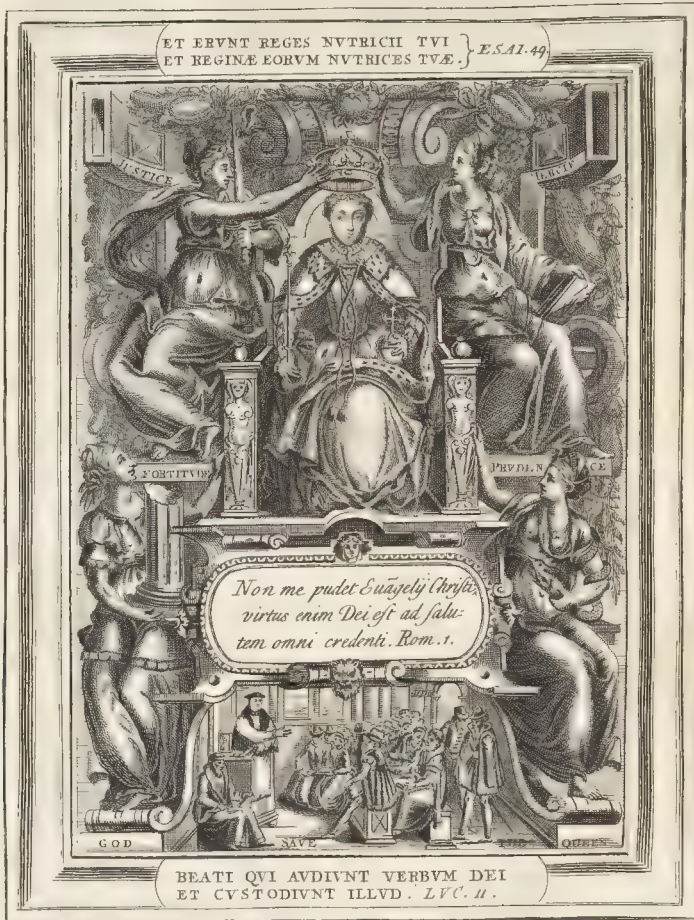 ET ERVNT REGES NVTRICII TVI
ET REGINÆ EORVM NVTRICES TVÆ. ESAI. 49.
IVSTICE
MERCIE
FORTITVDE
PRVDEN CE
Non me pudet Euãgelij Christi,
virtus enim Dei est ad salu:
tem omni credenti. Rom. 1.
GOD SAVE THE QUEEN
BEATI QVI AVDIVNT VERBVM DEI
ET CVSTODIVNT ILLVD. LVC. 11.